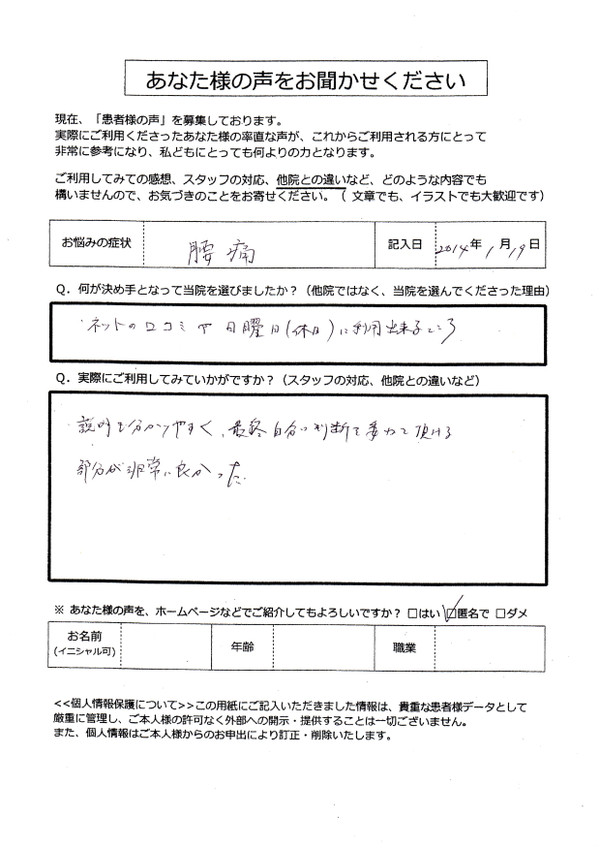 あなた様の声をお聞かせください
現在、「患者様の声」を募集しております。
実際にご利用くださったあなた様の率直な声が、これからご利用される方にとって
非常に参考になり、私どもにとっても何よりの力となります。
ご利用してみての感想、スタッフの対応、他院との違いなど、どのような内容でも
構いませんので、お気づきのことをお寄せください。（ 文章でも、イラストでも大歓迎です）
お悩みの症状 腰痛 記入日 2014年1月19日
Q．何が決め手となって当院を選びましたか？（他院ではなく、当院を選んでくださった理由）
ネットの口コミや日曜日(休日)に利用出来るところ
Q．実際にご利用してみていかがですか？（スタッフの対応、他院との違いなど）
説明も分かりやすく、最終自分に判断を委ねて頂ける
部分が非常に良かった。
※ あなた様の声を、ホームページなどでご紹介してもよろしいですか？ □はい ☑匿名で □ダメ
お名前 年齢 職業
(イニシャル可)
<<個人情報保護について>>この用紙にご記入いただきました情報は、貴重な患者様データとして
厳重に管理し、ご本人様の許可なく外部への開示・提供することは一切ございません。
また、個人情報はご本人様からのお申出により訂正・削除いたします。